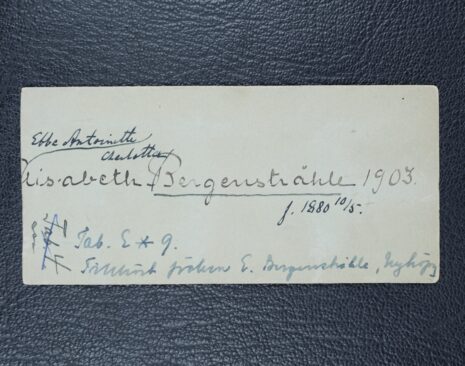 Ebba Antoinette
Charlotta
Elisabeth Bergenstråhle 1903.
f. 1880 10/5.
Tab. E * 9.
Tillhört fröken E. Bergenstråhle, Nyköping